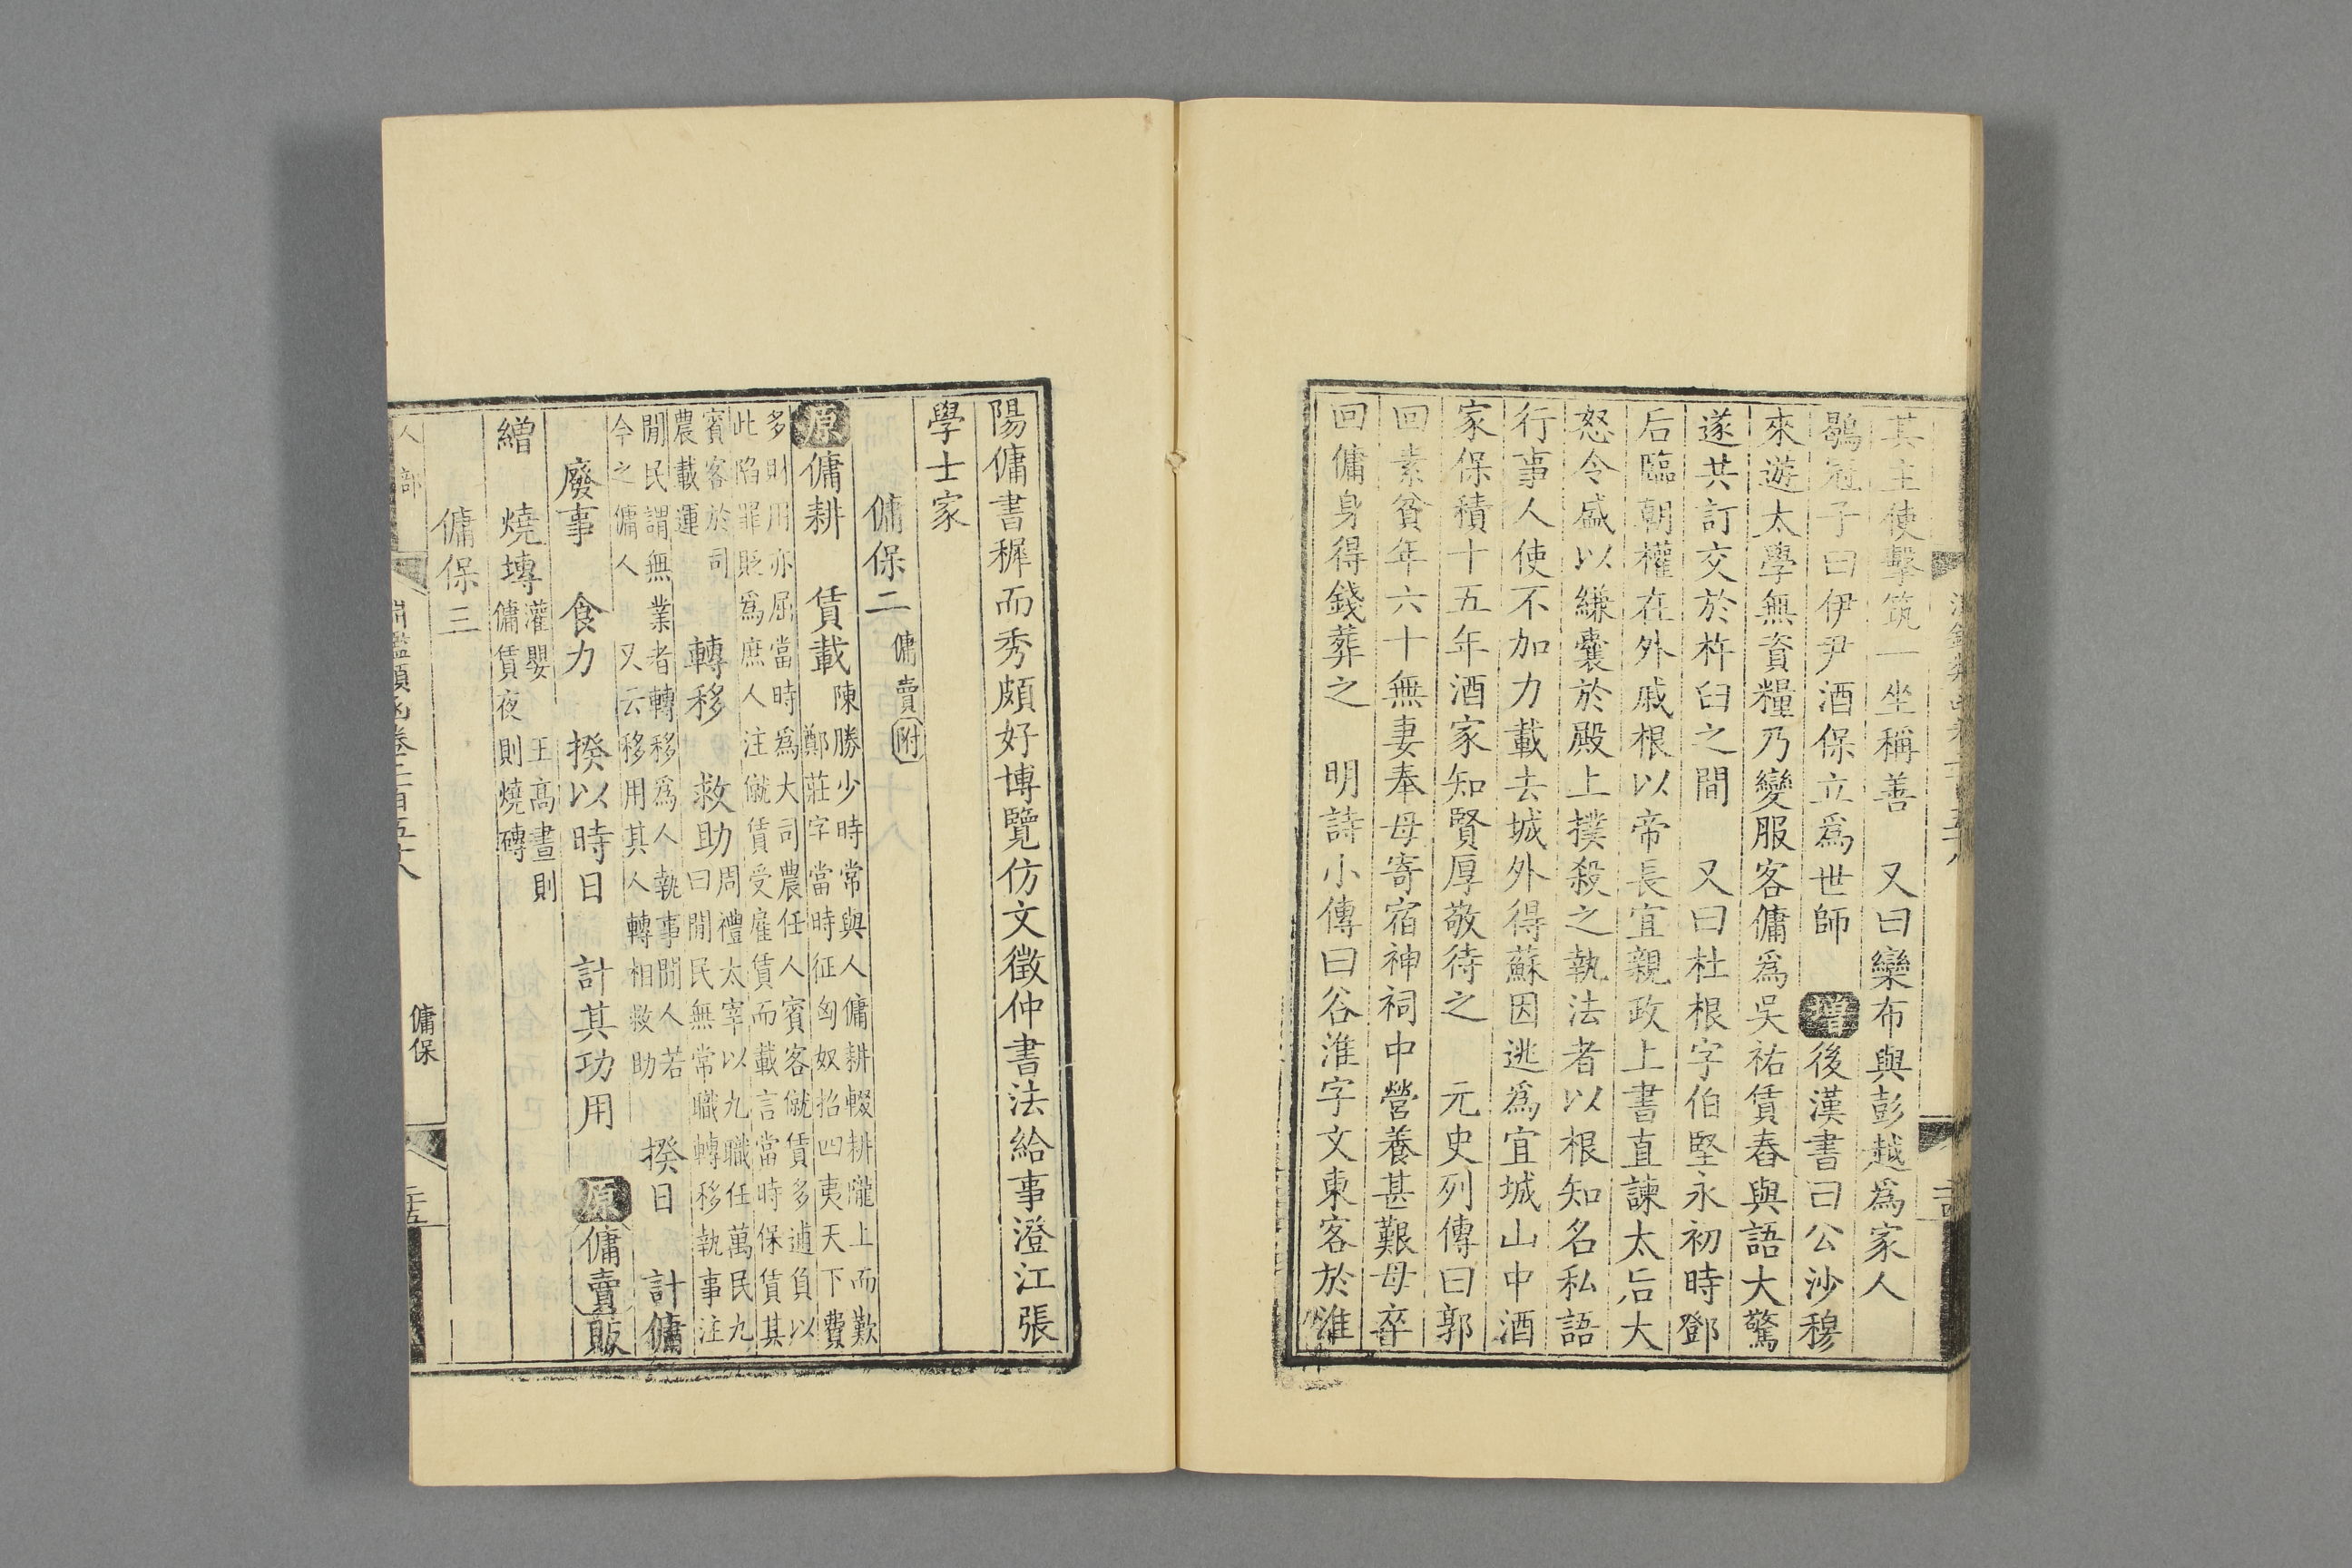 其主使擊筑一坐稱善　又曰欒布與彭越爲家人
鶡冠子曰伊尹酒保立爲世師　增後漢書曰公沙穆
來遊太學無資糧乃變服客傭爲吳祐賃舂與語大驚
遂共訂交於杵臼之間　又曰杜根字伯堅永初時鄧
后臨朝權在外戚根以帝長宜親政上書直諫太后大
怒令盛以縑囊於殿上撲殺之執法者以根知名私語
行事人使不加力載去城外得蘇因逃爲宜城山中酒
家保積十五年酒家知賢厚敬待之　元史列傳曰郭
回素貧年六十無妻奉母寄宿神祠中營養甚艱母卒
回傭身得錢葬之　明詩小傳曰谷淮字文東客於淮
陽傭書穉而秀頗好博覽仿文徵仲書法給事澄江張
學士家
傭保二 傭賣附
原傭耕　賃載 陳勝少時常與人傭耕輟耕隴上而歎
鄭莊字當時征匈奴招四夷天下費
多財用亦屈當時爲大司農任人賓客僦賃多逋負以
此陷罪貶爲庶人注僦賃受雇賃而載言當時保賃其
賓客於司
農載運
轉移　救助 周禮太宰以九職任萬民九
曰閒民無常職轉移執事注
閒民謂無業者轉移爲人執事閒人若
今之傭人　又云移用其人轉相救助
揆日　計傭
廢事　食力　揆以時日　計其功用　原傭賣　販
繒　燒塼 灌嬰　王高晝則
傭賃夜則燒磚
傭保三
人部
淵鑑類函卷二百五十八
傭保
二五